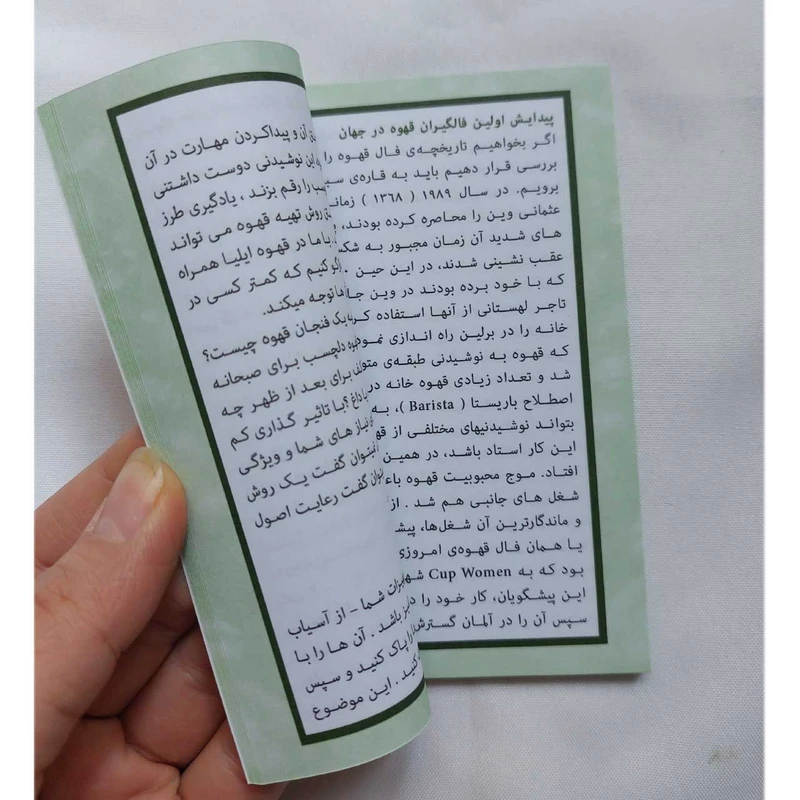 پیدایش اولین فالگیران قهوه در جهان
اگر بخواهیم تاریخچه‌ی فال قهوه را
بررسی قرار دهیم باید به قاره‌ی
برویم. در سال ۱۹۸۹ ( ۱۳۶۸ ) زمانی
عثمانی وین را محاصره کرده بودند،
های شدید آن زمان مجبور به
عقب نشینی شدند، در این حین
که با خود برده بودند در وین
تاجر لهستانی از آنها استفاده
خانه را در برلین راه اندازی
که قهوه به نوشیدنی طبقه‌ی
شد و تعداد زیادی قهوه خانه در
اصطلاح باریستا ( Barista )، به
بتواند نوشیدنیهای مختلفی از
این کار استاد باشد، در همین
افتاد. موج محبوبیت قهوه
شغل های جانبی هم شد . از
و ماندگارترین آن شغل‌ها،
یا همان فال قهوه‌ی امروزی
بود که به Cup Women
این پیشگویان، کار خود را
سپس آن را در آلمان
آن و پیداکردن مهارت در آن
این نوشیدنی دوست داشتنی
را رقم بزند ، یادگیری طرز
روش تهیه قهوه می تواند
با ما در قهوه ایلیا همراه
کنیم که کمتر کسی در
توجه میکند.
یک فنجان قهوه چیست؟
دلچسب برای صبحانه
برای بعد از ظهر چه
داغ ؟با تاثیر گذاری کم
نیاز های شما و ویژگی
گفت یک روش
گفت رعایت اصول
شما - از آسیاب
باشد . آن ها را با
را پاک کنید و سپس
کنید . این موضوع